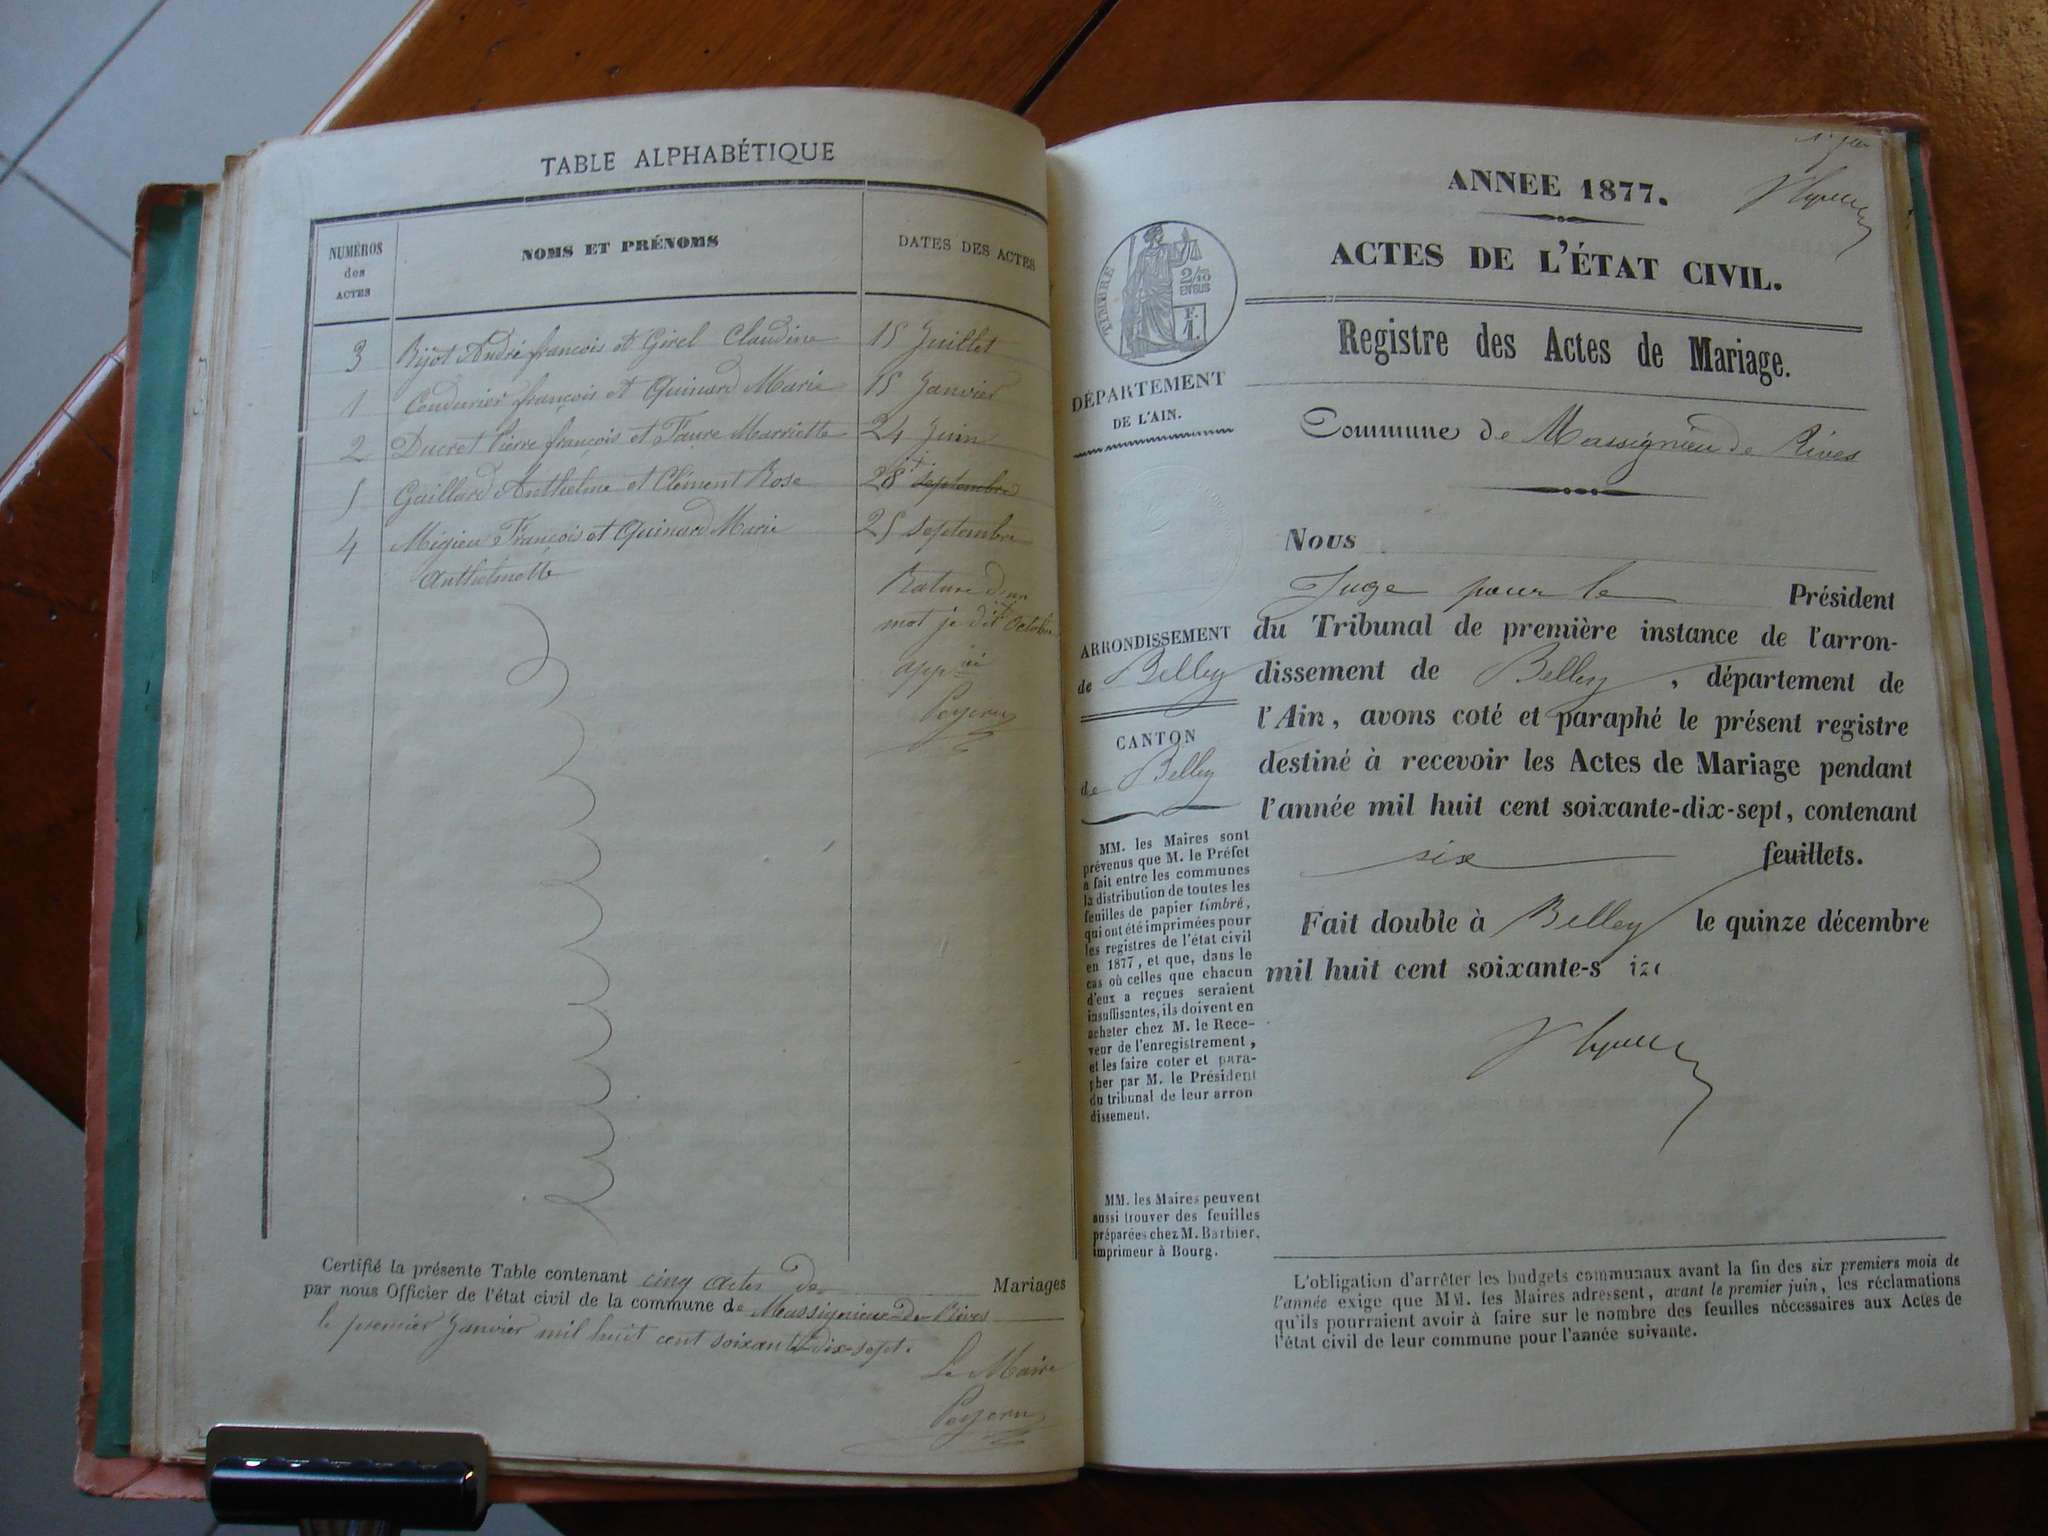 TABLE ALPHABÉTIQUE
NUMÉROS
des
ACTES
NOMS ET PRÉNOMS
DATES DES ACTES
3 Bijot André françois et Girel Claudine 15 Juillet
1 Coudurier françois et Quinard Marie 15 Janvier
2 Ducret Pierre françois et Faure Marriette 24 Juin
5 Gaillard Anthelme et Clément Rose 28 septembre
4 Migieu François et Quinard Marie 25 septembre
Anthelmette
Rature d'un
mot je dit octobre
Peysson
Certifié la présente Table contenant cinq actes de Mariages
par nous Officier de l'état civil de la commune de Massignieu de Rives
le premier Janvier mil huit cent soixante dix-sept.
Le Maire
ANNEE 1877.
ACTES DE L'ÉTAT CIVIL.
TIMBRE
2/10
EN SUS
F.
1.
Registre des Actes de Mariage.
DÉPARTEMENT
DE L'AIN.
Commune de Massignieu de Rives
Nous
Juge pour le Président
du Tribunal de première instance de l'arron-
dissement de Belley, département de
l'Ain, avons coté et paraphé le présent registre
destiné à recevoir les Actes de Mariage pendant
l'année mil huit cent soixante-dix-sept, contenant
six feuillets.
Fait double à Belley le quinze décembre
mil huit cent soixante-s
ARRONDISSEMENT
de Belley
CANTON
de Belley
MM. les Maires sont
prévenus que M. le Préfet
a fait entre les communes
la distribution de toutes les
feuilles de papier timbré,
qui ont été imprimées pour
les registres de l'état civil
en 1877, et que, dans le
cas où celles que chacun
d'eux a reçues seraient
insuffisantes, ils doivent en
acheter chez M. le Rece-
veur de l'enregistrement,
et les faire coter et para-
pher par M. le Président
du tribunal de leur arron
dissement.
MM. les Maires peuvent
aussi trouver des feuilles
préparées chez M. Barbier,
imprimeur à Bourg.
L'obligation d'arrêter les budgets communaux avant la fin des six premiers mois de
l'année exige que MM. les Maires adressent, avant le premier juin, les réclamations
qu'ils pourraient avoir à faire sur le nombre des feuilles nécessaires aux Actes de
l'état civil de leur commune pour l'année suivante.